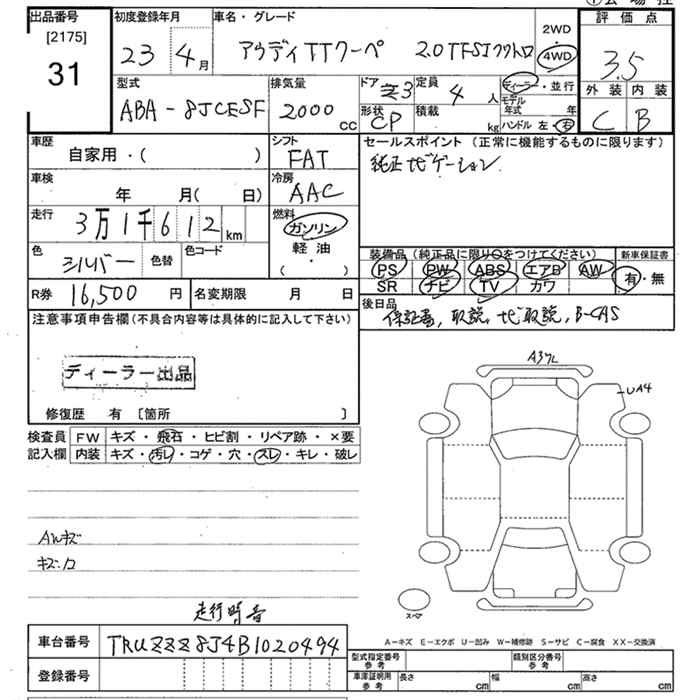 出品番号
[2175]
31
初度登録年月
23年 4月
車名・グレード
アウディTTクーペ 2.0TFSIクワトロ
2WD
・
4WD
評価点
3.5
外装 内装
C B
型式
ABA-8JCESF
排気量
2000 cc
ドア
3
形状
CP
定員
4 人
積載
kg
ディーラー・並行
モデル年式 年
ハンドル 左・右
車歴
自家用・( )
シフト
FAT
セールスポイント (正常に機能するものに限ります)
純正ナビゲーション
車検
年 月( 日)
冷房
AAC
走行
3万1千612 km
燃料
ガソリン
軽油
( ・ )
色
シルバー
色替
色コード
装備品 (純正品に限り○をつけてください)
新車保証書
PS PW ABS エアB AW
SR ナビ TV カワ
有・無
R券 16,500 円
名変期限 月 日
後日品
保証書, 取説, ナビ取説, B-CAS
注意事項申告欄 (不具合内容等は具体的に記入して下さい)
ディーラー出品
修復歴 有 [箇所 ]
A3ワレ
UA4
検査員
記入欄
FW キズ・飛石・ヒビ割・リペア跡・×要
内装 キズ・汚レ・コゲ・穴・スレ・キレ・破レ
AWキズ
キズ・凹
スペア
走行時音
A-キズ E-エクボ U-凹み W-補修跡 S-サビ C-腐食 XX-交換済
車台番号 TRUZZZ8J4B1020494
登録番号
型式指定番号
参考
類別区分番号
参考
車庫証明用
参考
長さ cm
幅 cm
高さ cm